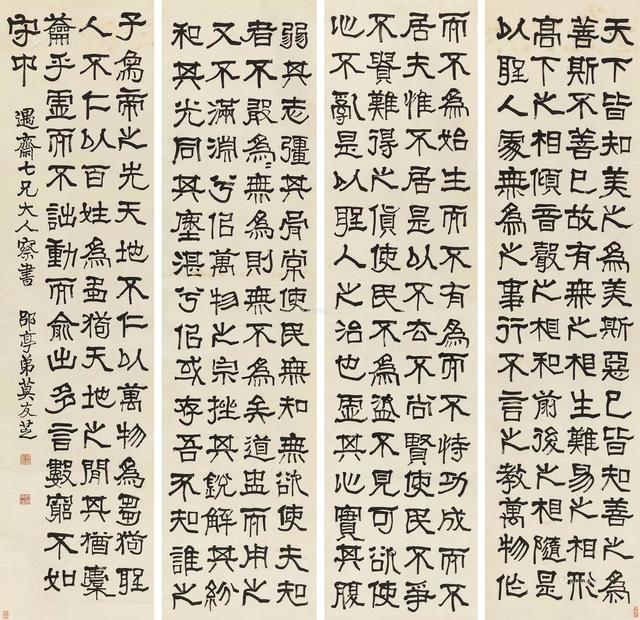 天下皆知美之為美斯惡已皆知善之為
善斯不善已故有無之相生難易之相形
高下之相傾音聲之相和前後之相隨是
以聖人處無為之事行不言之教萬物作
而不為始生而不有為而不恃功成而不
居夫惟不居是以不去不尚賢使民不爭
不貴難得之貨使民不為盜不見可欲使
心不亂是以聖人之治也虛其心實其腹
弱其志彊其骨常使民無知無欲使夫知
者不敢為〻無為則無不為矣道盅而用之
又不滿淵兮佀萬物之宗挫其銳解其紛
和其光同其塵湛兮佀或存吾不知誰之
子為帝之先天地不仁以萬物為芻狗聖
人不仁以百姓為芻狗天地之閒其猶橐
籥乎虛而不詘動而俞出多言數窮不如
守中
遇齋七兄大人察書 郘亭弟莫友芝